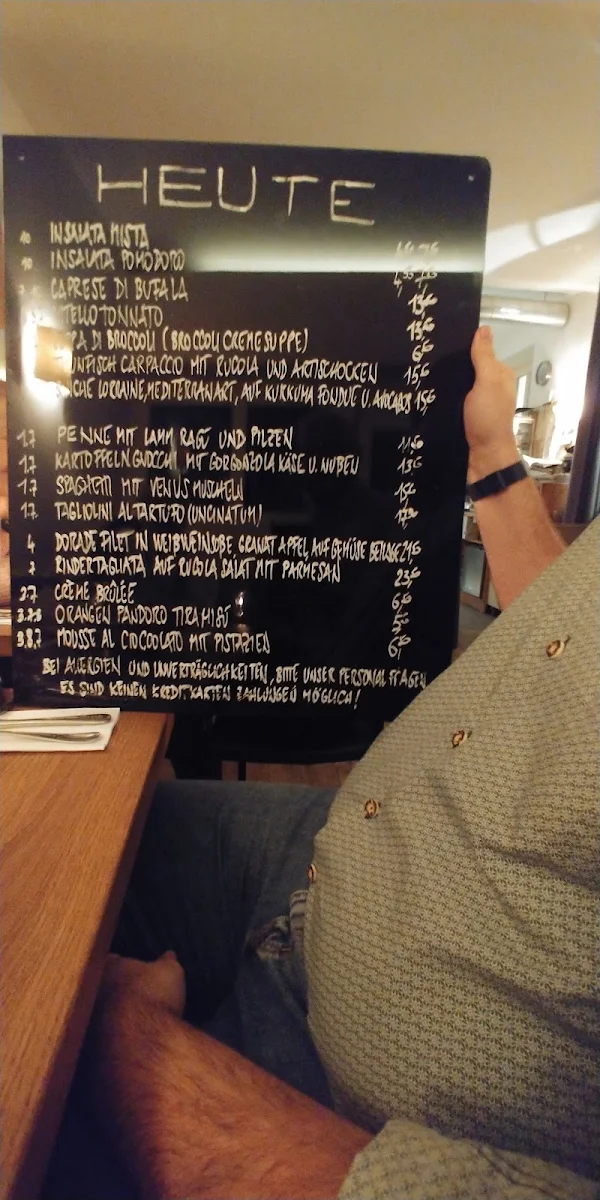 HEUTE
10 INSALATA MISTA
10 INSALATA POMODORO
CAPRESE DI BUFALA
TELLO TONNATO
PA DI BROCCOLI (BROCCOLI CREMESUPPE) 6€
UNFISCH CARPACCIO MIT RUCOLA UND ARTISCHOCKEN 15,€
CHE LORAINE, MEDITERRAN ART, AUF KURKUMA FONDUE U. AVOCADOS 15€
1.7 PENNE MIT LAMM RAGU UND PILZEN
1.7 KARTOFFELN GNOCCHI MIT GORGONZOLA KÄSE U. NÜßEN 13€
1.7 SPAGHETTI MIT VENUSMUSCHELN
1.7 TAGLIOLINI AL TARTUFO (UNCINATUM)
4 DORADE FILET IN WEIßWEINSOßE, GRANATAPFEL, AUF GEMÜSE BEILAGE 21€
7 RINDERTAGLIATA AUF RUCOLA SALAT MIT PARMESAN 23€
3.7 CRÈME BRÛLÉE
3.7.8 ORANGEN PANDORO TIRAMISÙ
3.8.7 MOUSSE AL CIOCCOLATO MIT PISTAZIEN
BEI ALLERGIEN UND UNVERTRÄGLICHKEITEN, BITTE UNSER PERSONAL FRAGEN
ES SIND KEINEN KREDITKARTEN ZAHLUNGEN MÖGLICH!